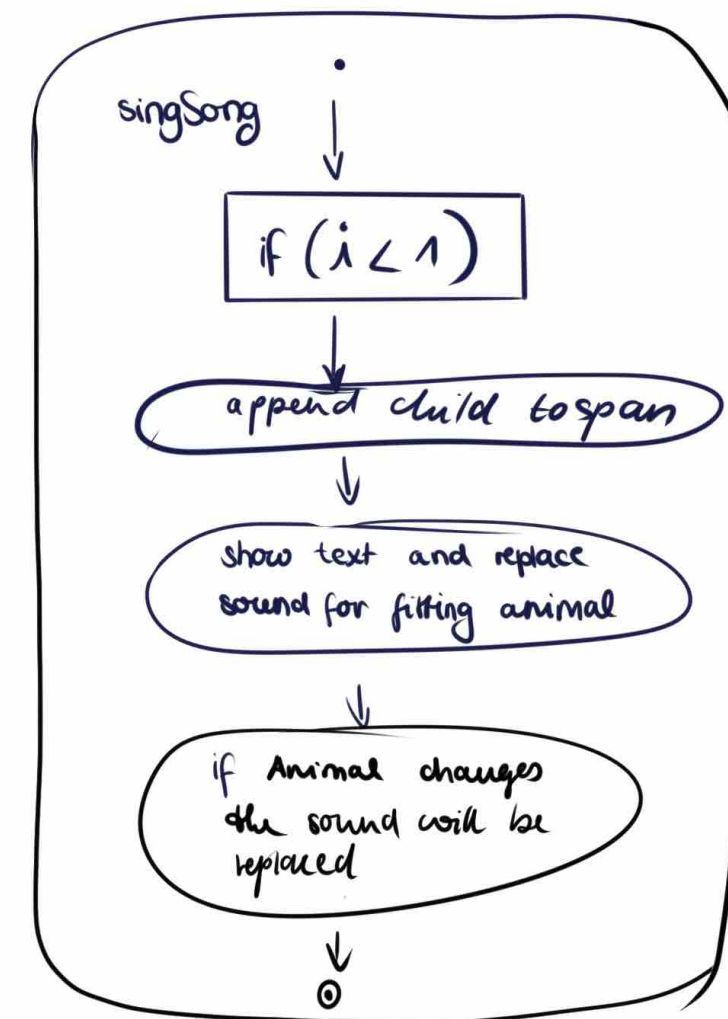 singSong
if (i < 1)
append child to span
show text and replace
sound for fitting animal
if Animal changes
the sound will be
replaced